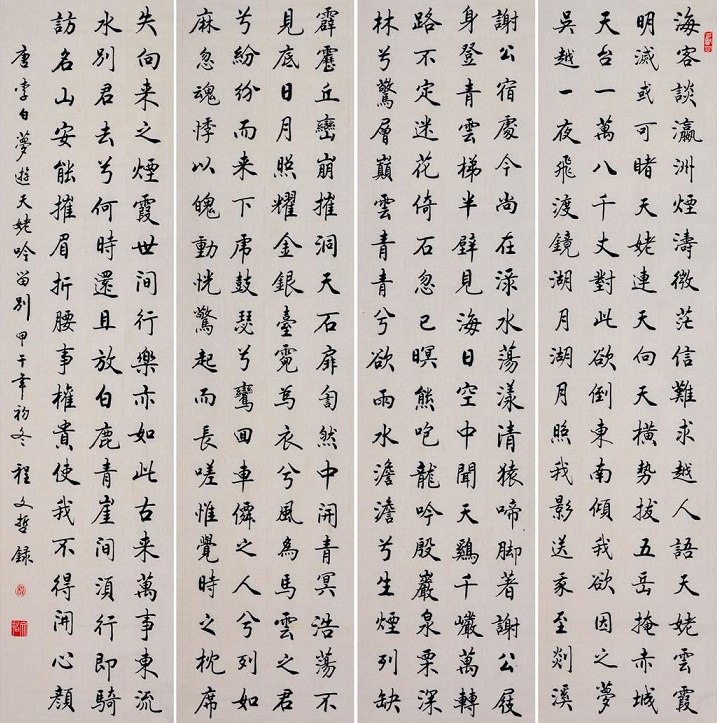 海客談瀛洲煙濤微茫信難求越人語天姥雲霞
明滅或可睹天姥連天向天橫勢拔五岳掩赤城
天台一萬八千丈對此欲倒東南傾我欲因之夢
吳越一夜飛渡鏡湖月湖月照我影送我至剡溪
謝公宿處今尚在淥水蕩漾清猿啼脚著謝公屐
身登青雲梯半壁見海日空中聞天鷄千巖萬轉
路不定迷花倚石忽已暝熊咆龍吟殷巖泉栗深
林兮驚層巔雲青青兮欲雨水澹澹兮生煙列缺
霹靂丘巒崩摧洞天石扉訇然中開青冥浩蕩不
見底日月照耀金銀臺霓為衣兮風為馬雲之君
兮紛紛而来下虎鼓瑟兮鸞回車僊之人兮列如
麻忽魂悸以魄動恍驚起而長嗟惟覺時之枕席
失向来之煙霞世間行樂亦如此古来萬事東流
水別君去兮何時還且放白鹿青崖間須行即騎
訪名山安能摧眉折腰事權貴使我不得開心顏
唐李白夢遊天姥吟留別 甲午年初冬 程文哲録